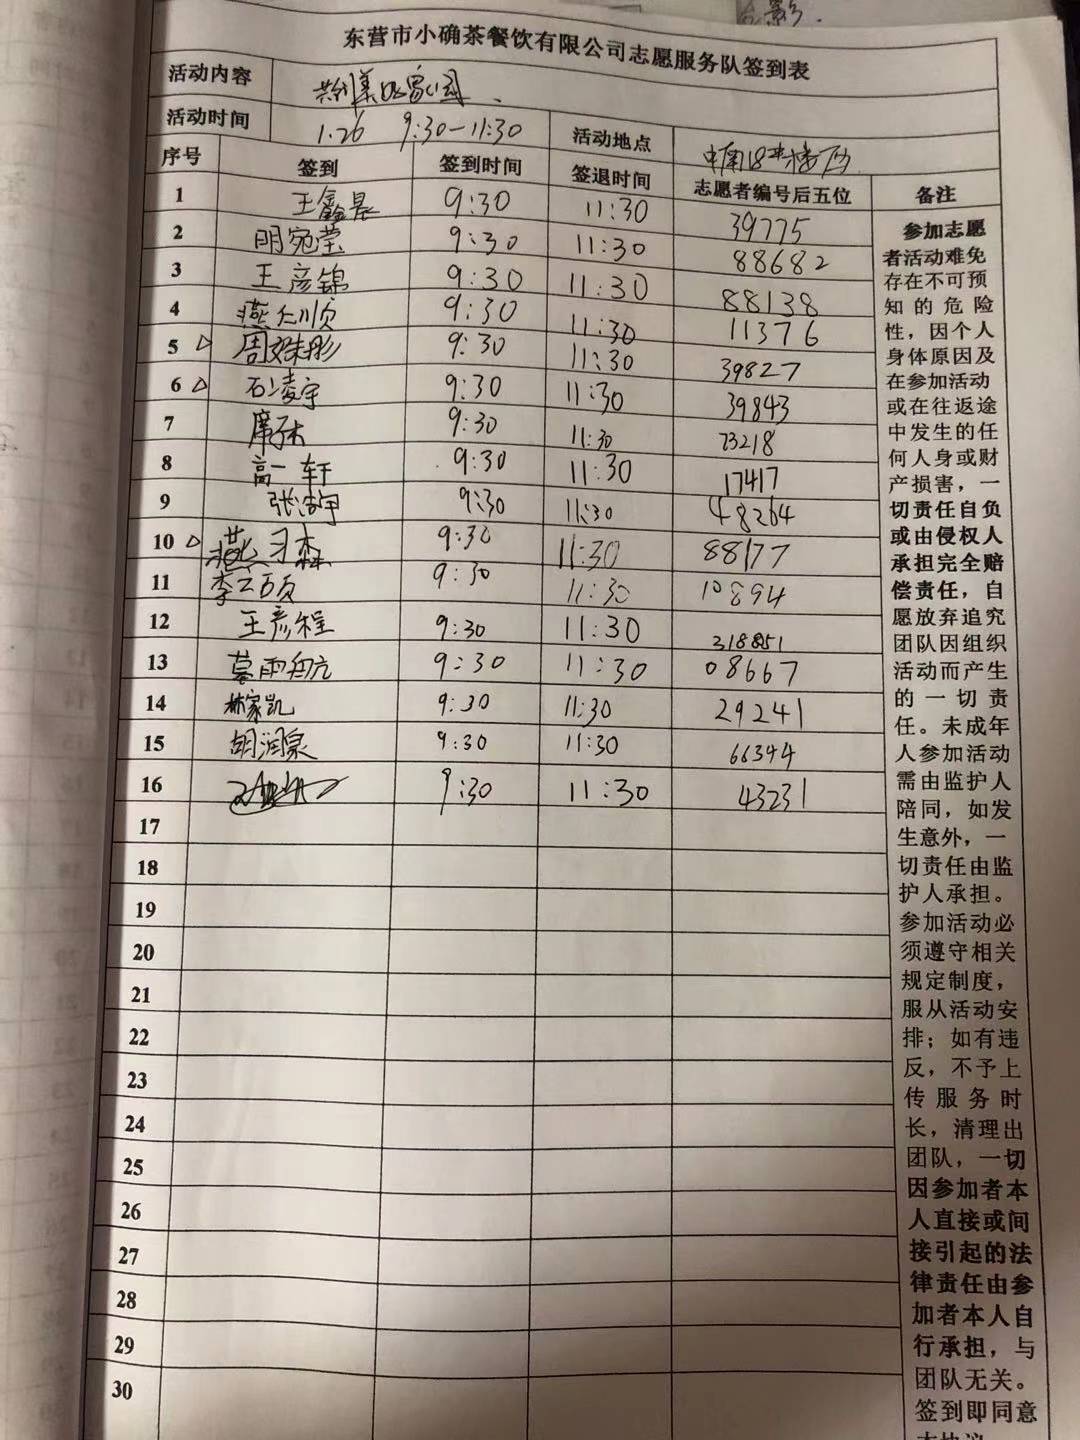 东营市小确茶餐饮有限公司志愿服务队签到表
活动内容
活动时间 1.26 9:30-11:30 活动地点
序号 签到 签到时间 签退时间 志愿者编号后五位 备注
1 王鑫晨 9:30 11:30 39775
2 明宛莹 9:30 11:30 88682
3 王彦锦 9:30 11:30 88138
4 燕仁顺 9:30 11:30 11376
5 9:30 11:30 39827
6 石凌宇 9:30 11:30 39843
7 席子木 9:30 11:30 23218
8 高一轩 9:30 11:30 17417
9 9:30 11:30 48264
10 9:30 11:30 88177
11 9:30 11:30 10894
12 王彦程 9:30 11:30 318851
13 9:30 11:30 08667
14 林家凯 9:30 11:30 29241
15 胡润泉 9:30 11:30 66394
16 9:30 11:30 43231
17
18
19
20
21
22
23
24
25
26
27
28
29
30
参加志愿
者活动难免
存在不可预
知的危险
性，因个人
身体原因及
在参加活动
或在往返途
中发生的任
何人身或财
产损害，一
切责任自负
或由侵权人
承担完全赔
偿责任，自
愿放弃追究
团队因组织
活动而产生
的一切责
任。未成年
人参加活动
需由监护人
陪同，如发
生意外，一
切责任由监
护人承担。
参加活动必
须遵守相关
规定制度，
服从活动安
排；如有违
反，不予上
传服务时
长，清理出
团队，一切
因参加者本
人直接或间
接引起的法
律责任由参
加者本人自
行承担，与
团队无关。
签到即同意
本协议